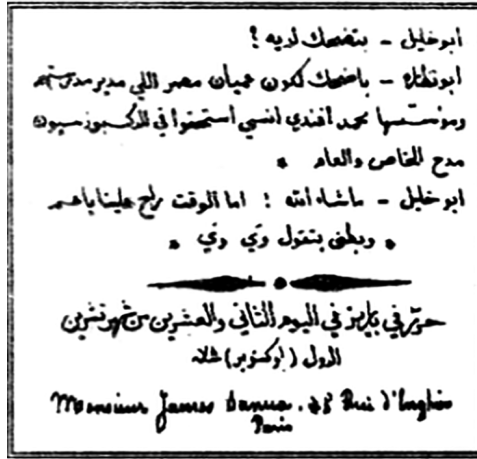 ابو خليل – بتضحك لديه ؟
ابو نظاره – باضحك لكون عميان مصر اللي مدير مدرستهم
ومؤسسها محمد افندي انسي استحقوا في الاكسبوزسيون
مدح الخاص والعام *
ابو خليل – ماشاء الله ! اما الوقت راح علينا يا عم
* وبطني بتقول وي وي *
حرر في باريز في اليوم الثاني والعشرين من شهر تشرين
الاول (اوكتوبر)
Monsieur James Sanua. 48 Rue d'Enghien
Paris